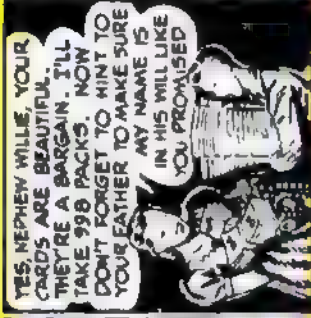 YES, NEPHEW WILLIE, YOUR
CARDS ARE BEAUTIFUL.
THEY'RE A BARGAIN. I'LL
TAKE 998 PACKS. NOW
DON'T FORGET TO HINT TO
YOUR FATHER TO MAKE SURE
MY NAME IS
IN HIS WILL LIKE
YOU PROMISED